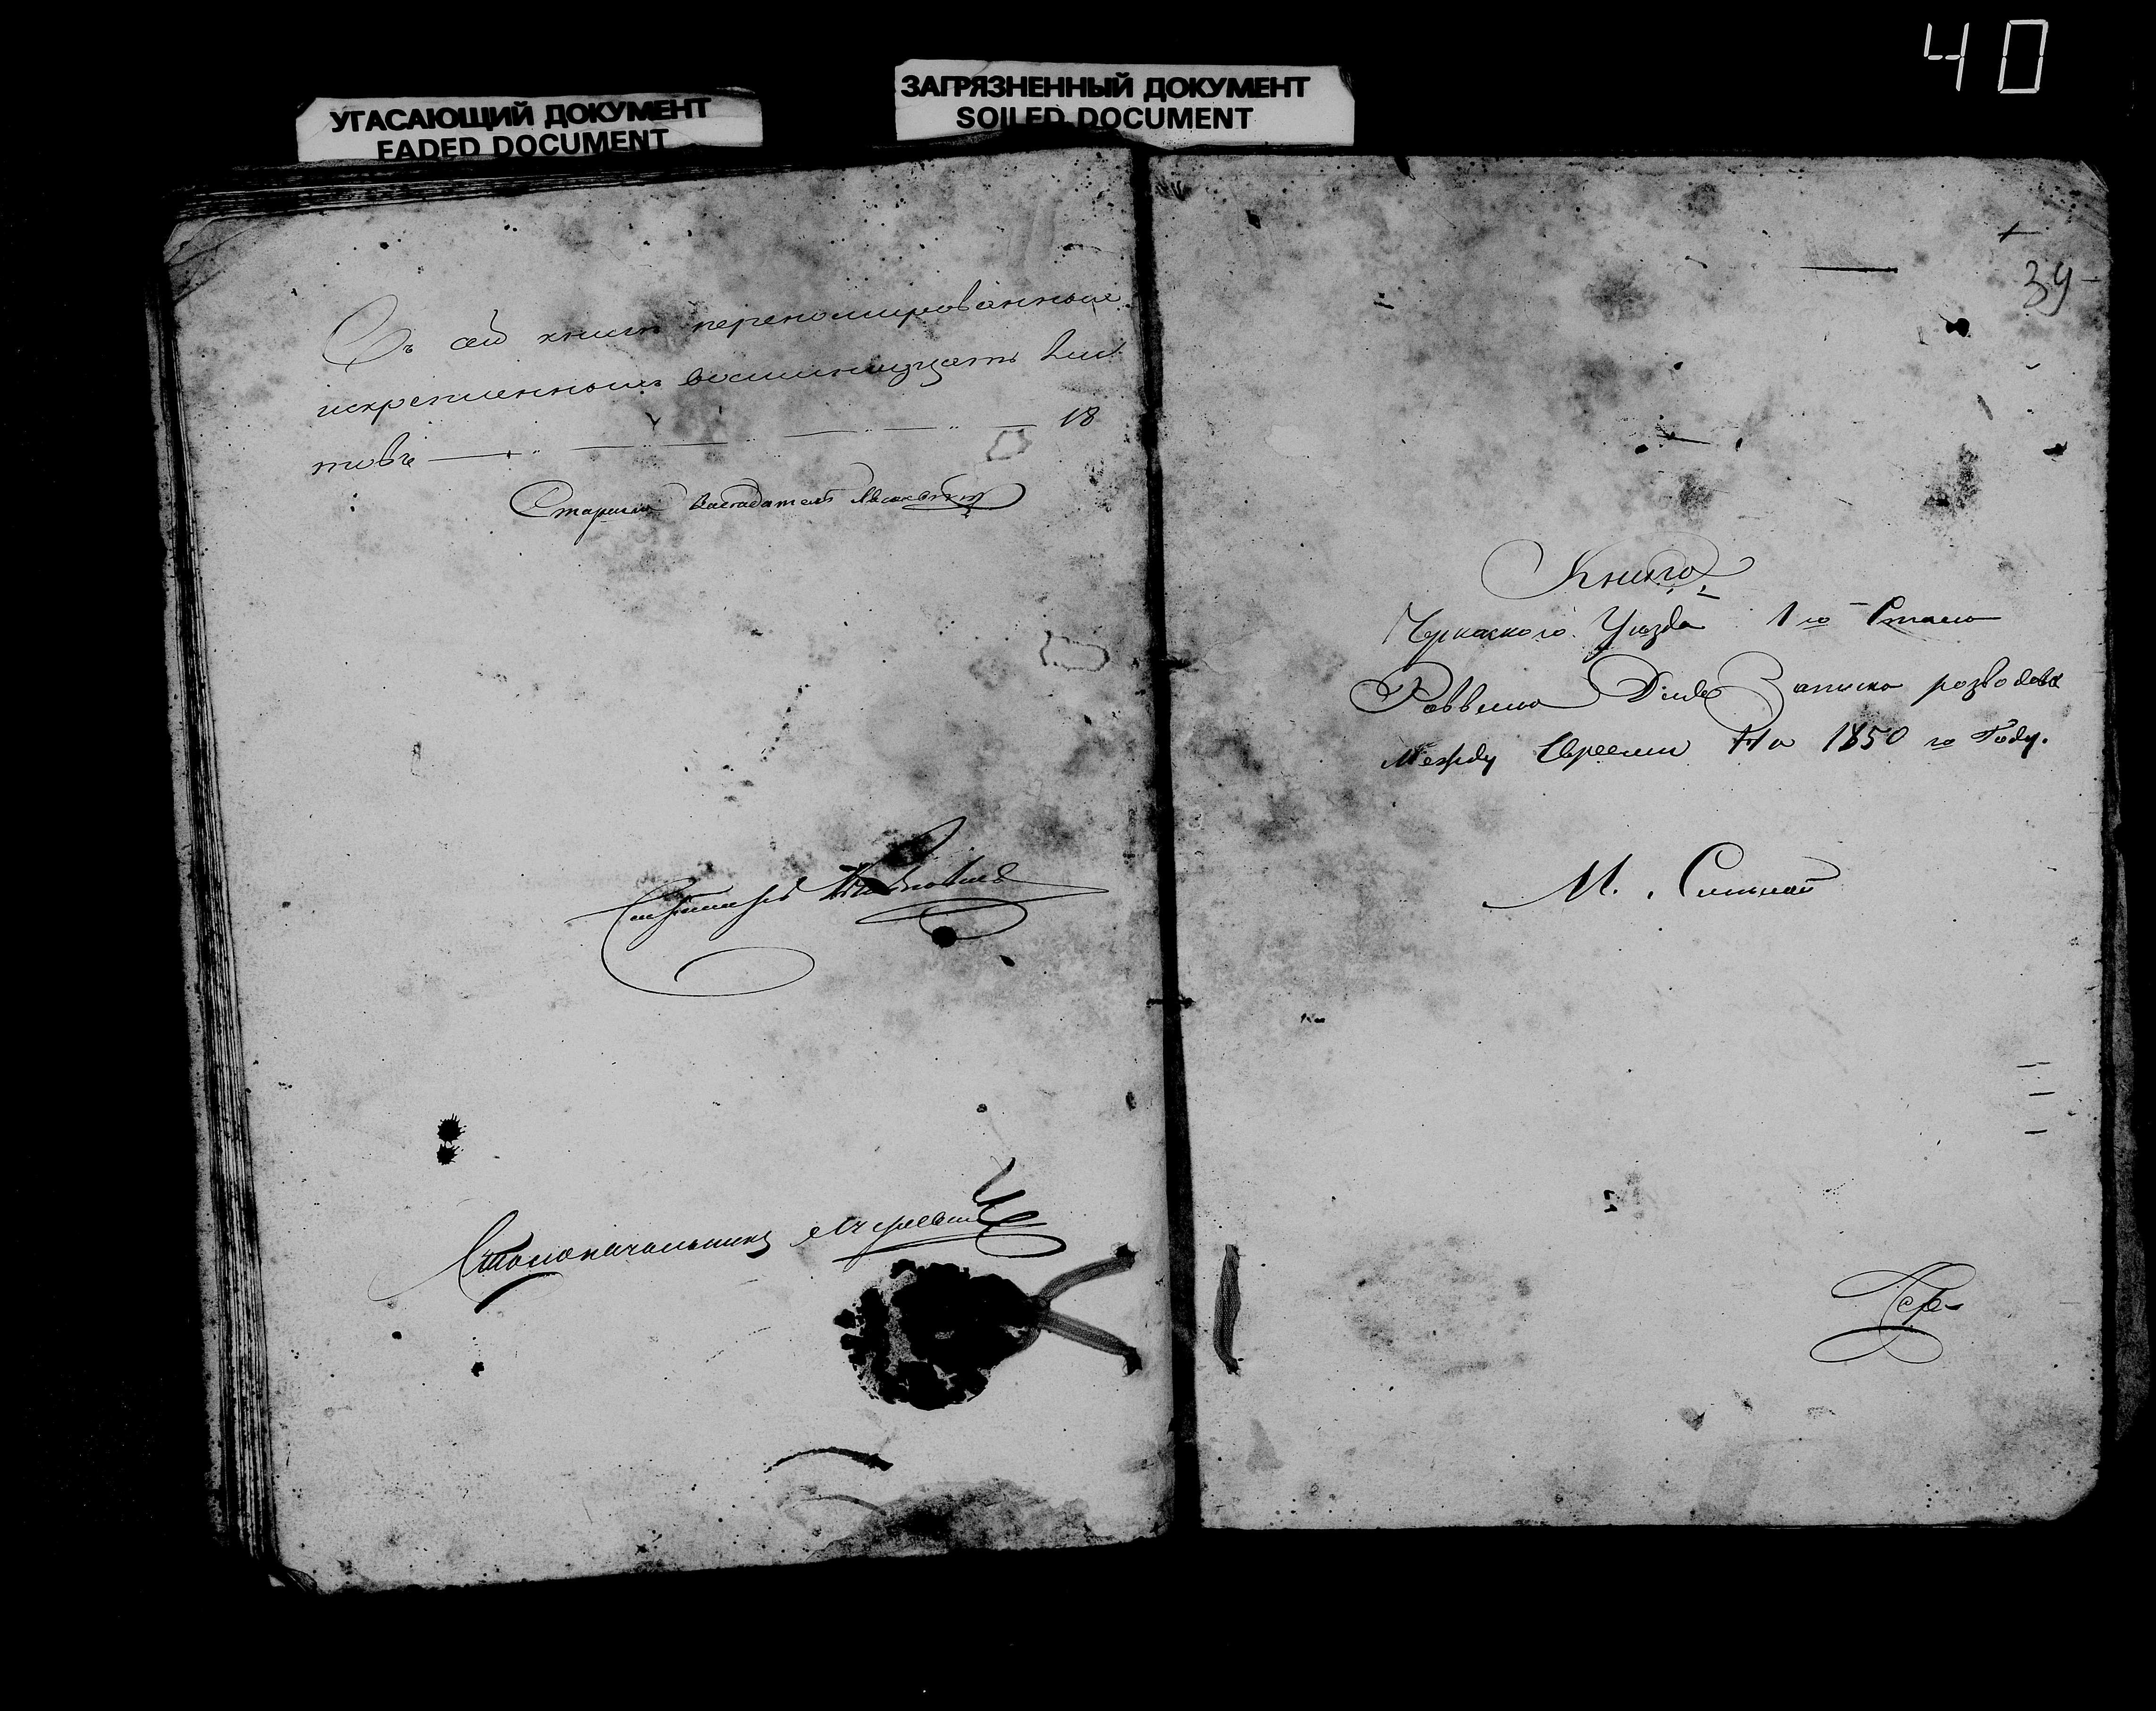 40
УГАСАЮЩИЙ ДОКУМЕНТ
FADED DOCUMENT
ЗАГРЯЗНЕННЫЙ ДОКУМЕНТ
SOILED DOCUMENT
Въ сей книги перенумерованных
искрепленных восимнадцать Лис
товъ 18
Старший Заседатель
Секретарь
Столоначальник
39
Книга
Черкаского Уезда 1го Стана
Раввина Для Записки розводовъ
Между Евреями На 1850 го Году.
М. Смелой